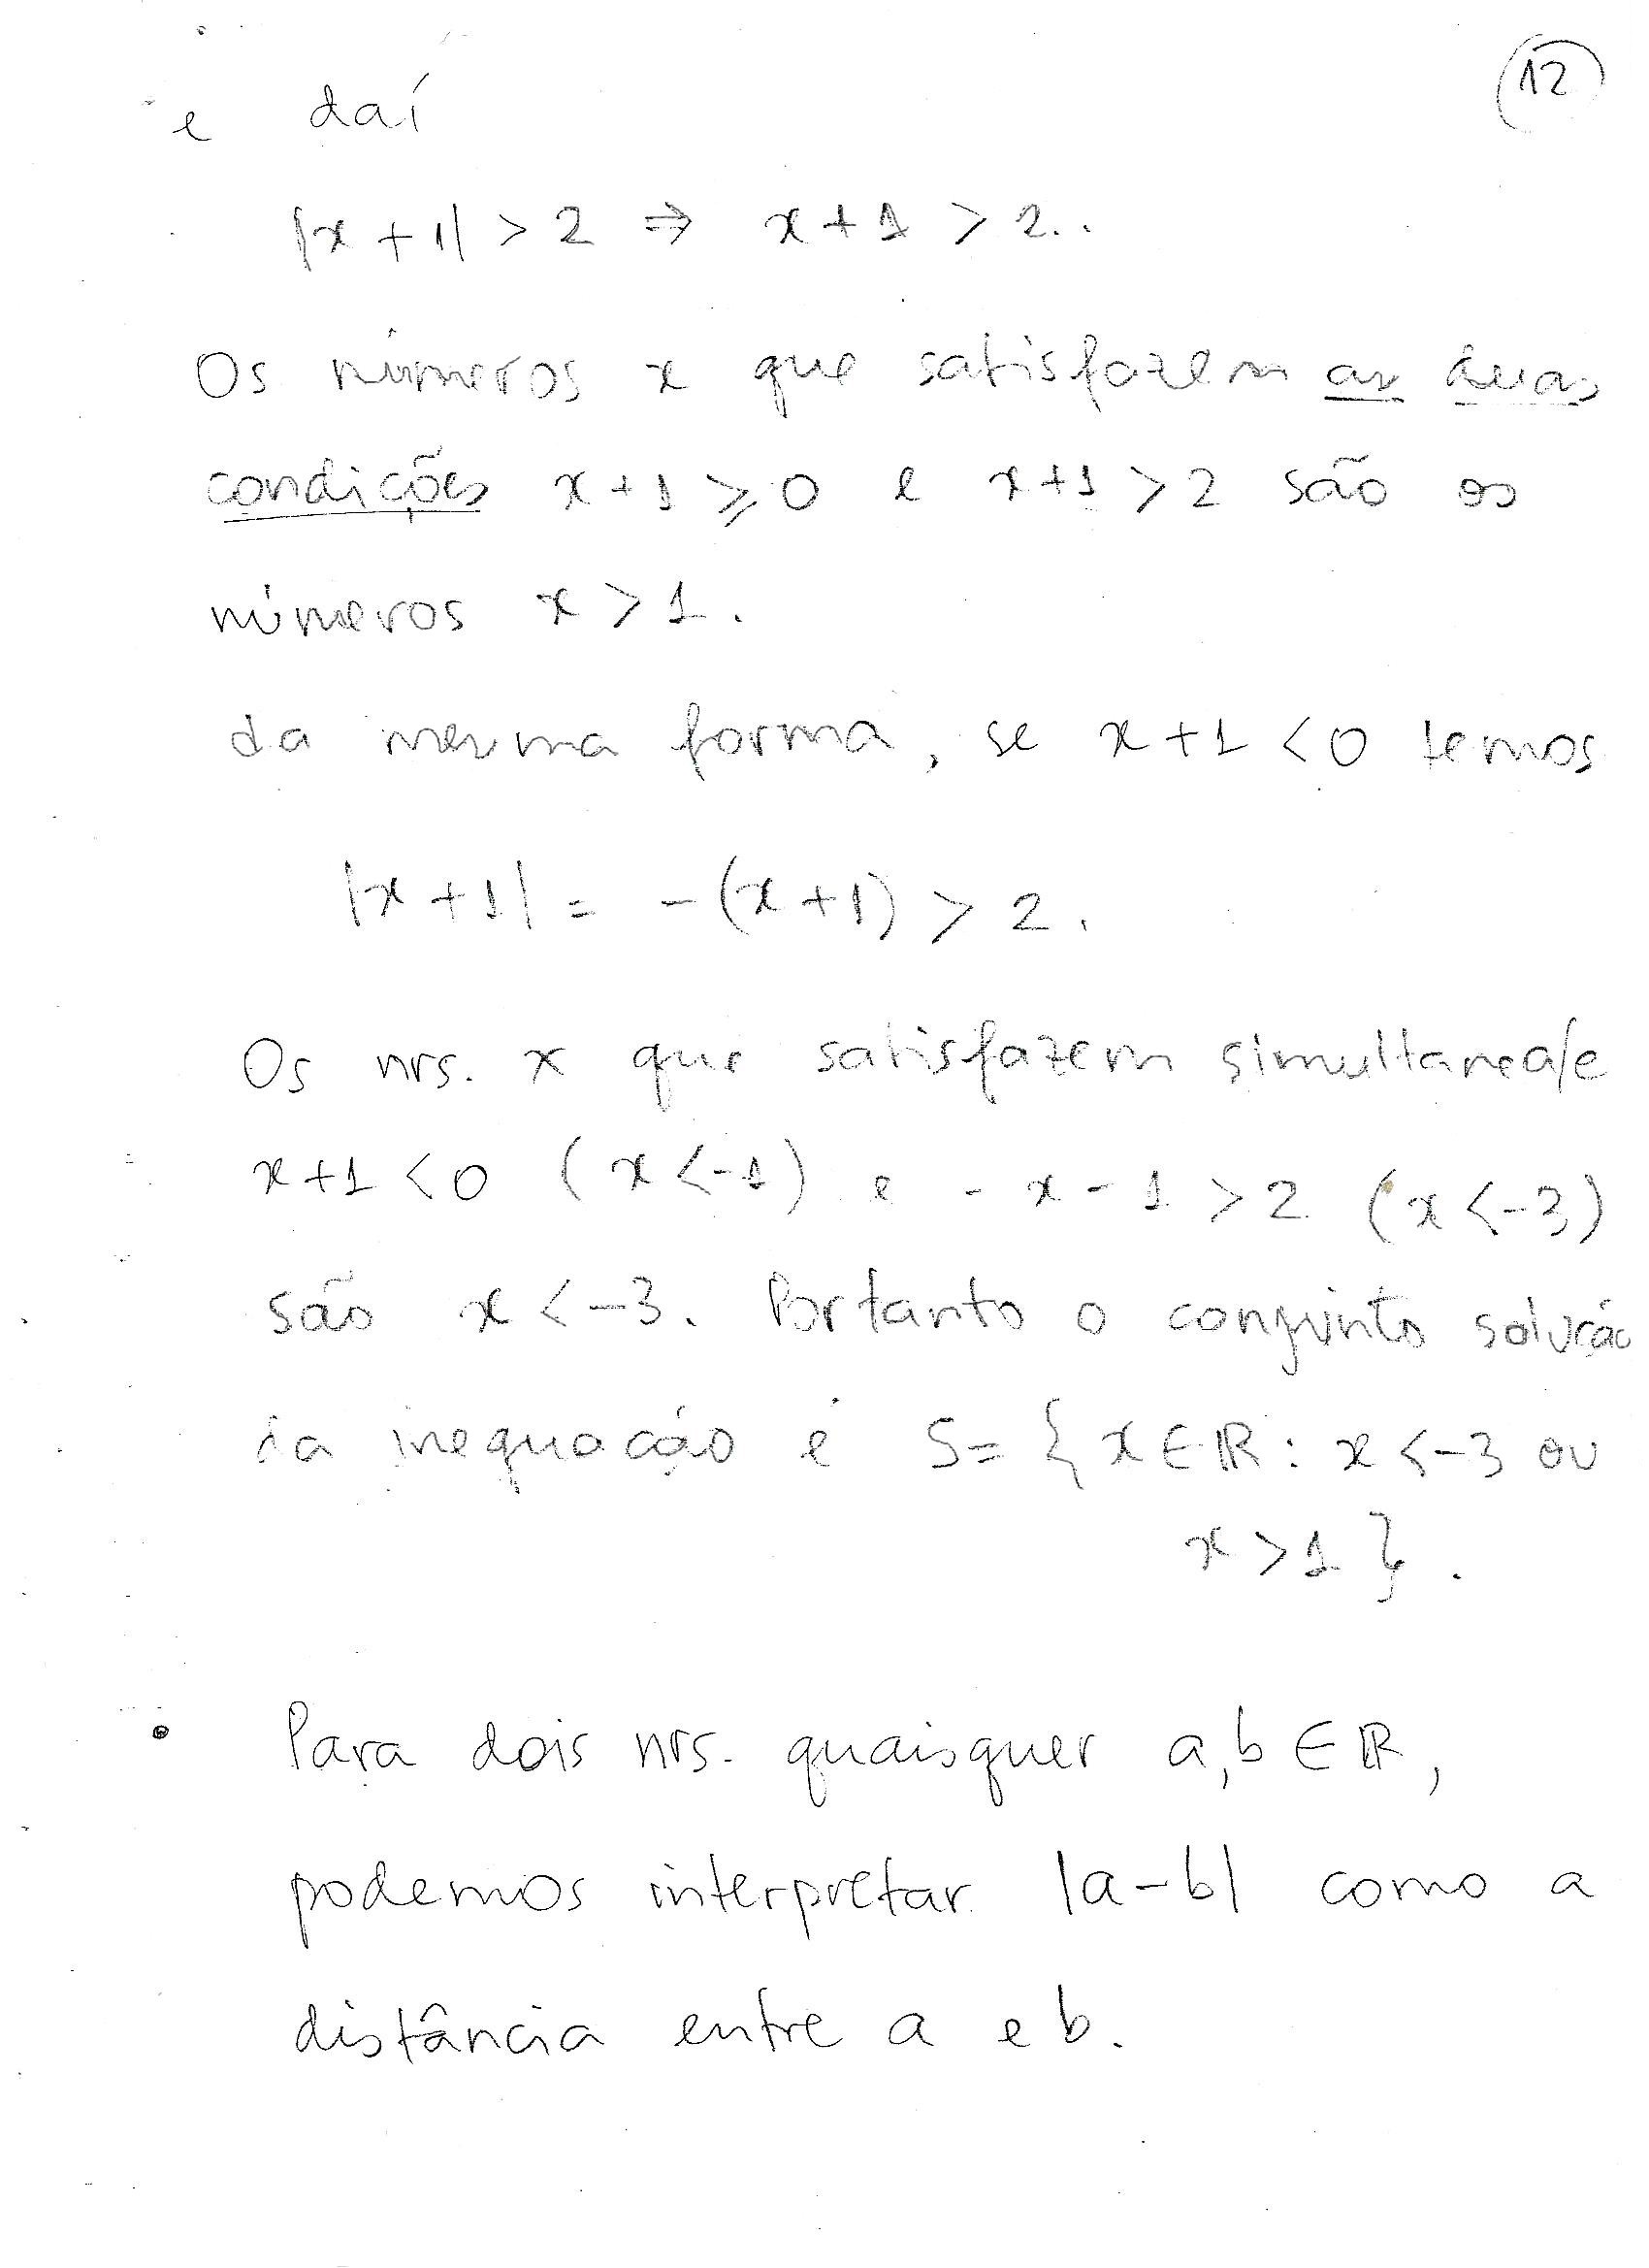 12
e daí
|x + 1| > 2 ⇒ x + 1 > 2..
Os números x que satisfazem as duas
condições x+1 ⩾ 0 e x+1 > 2 são os
números x > 1.
da mesma forma, se x+1 < 0 temos
|x + 1| = -(x+1) > 2.
Os nrs. x que satisfazem simultanea/e
x+1 < 0 (x < -1) e -x - 1 > 2 (x < -3)
são x < -3. Portanto o conjunto solução
da inequação é S = { x ∈ ℝ : x < -3 ou
x > 1 }.
• Para dois nrs. quaisquer a, b ∈ ℝ,
podemos interpretar |a - b| como a
distância entre a e b.